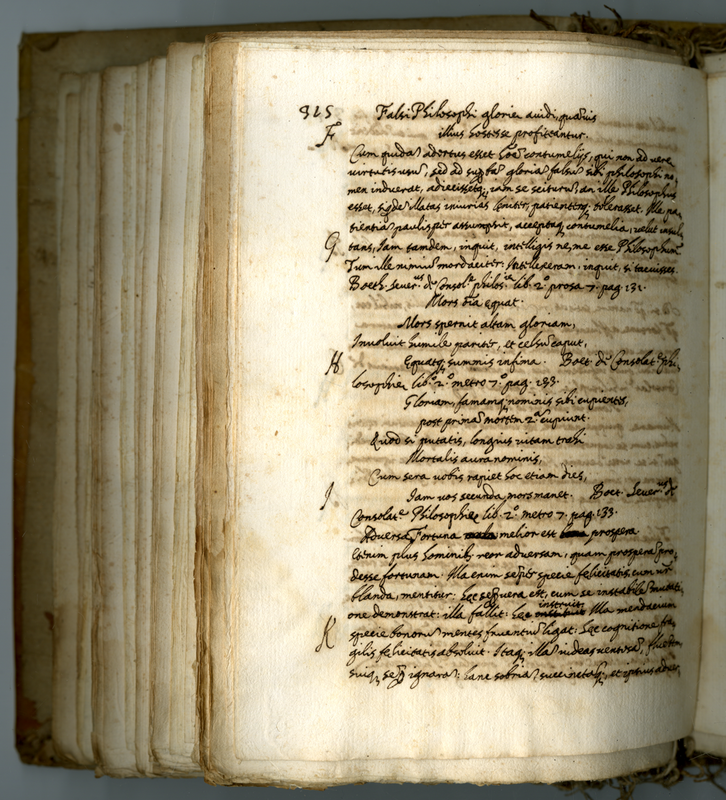 315 Falsi Philosophi gloriæ auidi, quāuis
F illius hostes se profitantur.
Cum quidā adortus esset hōēm contumelijs, qui non ad veræ
virtutis usū, sed ad supbā gloriā falsū sibi philosophi no-
men induerat, adiecissetq; iam se sciturū, an ille Philosophus
esset, siqde illatas iniurias leniter, patienterq; tolerasset. Illa pa-
tientiā paulisper assumpsit, acceptaq; contumelia, velut insul-
G tans, Iam tandem, inquit, intelligis ne, me esse Philosophum?
Tum ille nimiū mordaciter: Intellexeram, inquit, si tacuisses.
Boeth. Seuer.us dē Consol.e philos.iæ lib. 2.o prosa 7. pag. 131.
Mors oīa equat.
Mors spernit altam gloriam,
Inuoluit humile pariter, et celsū caput,
H Equatq; summis infima. Boet. dē Consolat.e Phi-
losophiæ lib.o 2.o metro 7.o pag. 133.
Gloriam, famamq; nominis sibi cupientes,
post primā mortem 2.ā cupiunt.
Quod si putatis, longius vitam trahi
Mortalis aura nominis,
Cum sera vobis rapiet hoc etiam dies,
I Iam vos secunda mors manet. Boet. Seuer.us dē
Consolat.e Philosophiæ lib. 2.o metro 7. pag. 133.
Aduersa Fortuna melior est prospera.
Etenim plus hominib; reor aduersam, quam prosperā pro-
desse fortunam. Illa enim sēper specie felicitatis, cum vr̄
blanda, mentitur: hæc sēper vera est, cum se instabilē mutati-
one demonstrat: illa fallit: hæc instruit. Illa mendacium
K specie bonorū mentes fruentiū ligat: hæc cognitione fra-
gilis felicitatis absoluit. Itaq; illā videas ventosā, fluentem,
suiq; semp ignarā: hanc sobriā, succinctāq;, et ipsius aduer-